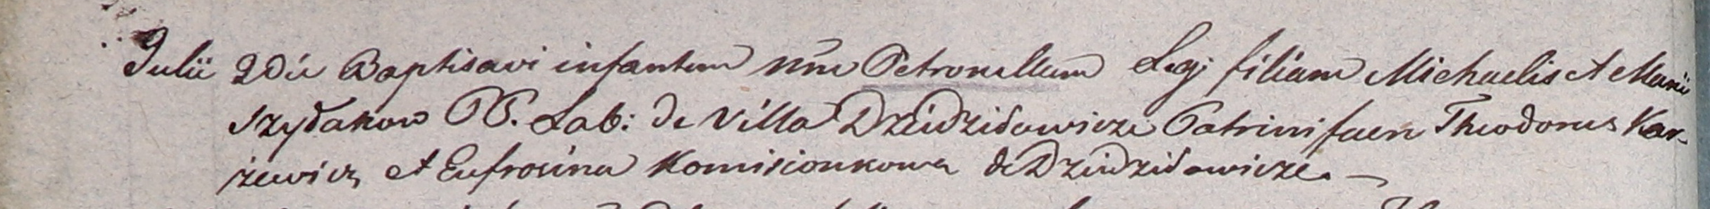 Julii 2 die Baptisavi infantem nne Petronellam Legi filiam Michaelis et Marii
Szydakow PP. Lab: de Villa Dzidzidowicze Patrini fuen Theodorus Kar-
żewicz et Eufrosina Komisionkowa de Dzidzidowicze. —